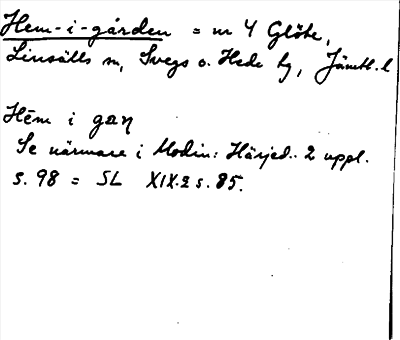 Hem-i-gården = nr 4 Glöte,
Linsälls sn, Svegs o. Hede tg, Jämtl. l
Hēm i gaŋ
Se närmare i Modin: Härjed. 2 uppl.
s. 98 = SL XIX.2 s. 85.